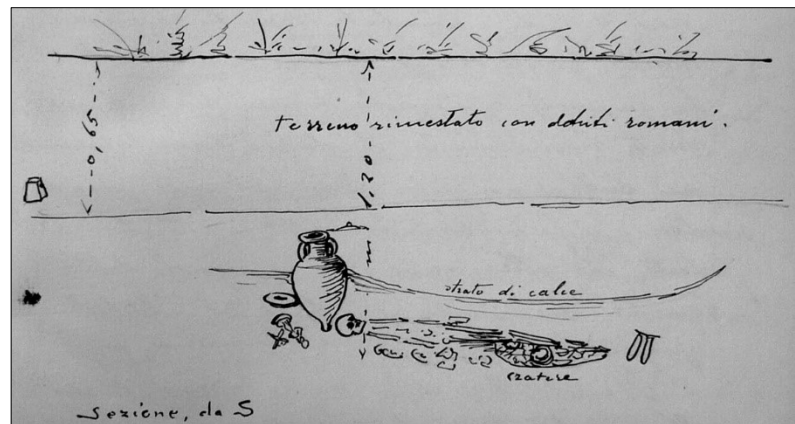 0,65
terreno rimestato con detriti romani.
1,20 m
strato di calce
cratere
Sezione, da S